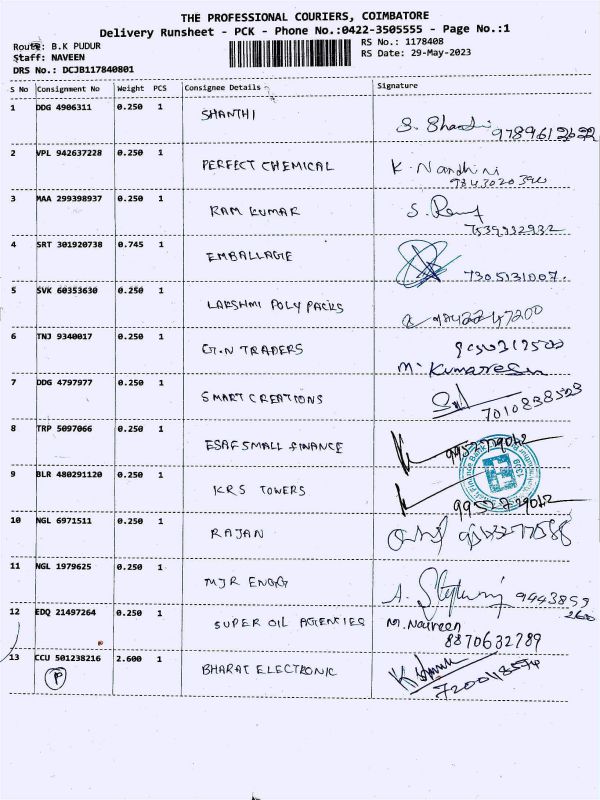 THE PROFESSIONAL COURIERS, COIMBATORE
Delivery Runsheet - PCK - Phone No.:0422-3505555 - Page No.:1
Route: B.K PUDUR RS No.: 1178408
Staff: NAVEEN RS Date: 29-May-2023
DRS No.: DCJB117840801
S No Consignment No Weight PCS Consignee Details Signature
1 DDG 4906311 0.250 1 SHANTHI
S. Shanthi 9789612622
2 VPL 942637228 0.250 1 PERFECT CHEMICAL K. Nandhini
3 MAA 299398937 0.250 1 RAM KUMAR S.
7539932932
4 SRT 301920738 0.745 1 EMBALLAGE
7305131007.
5 SVK 60353630 0.250 1 LAKSHMI POLY PACKS
9842247200
6 TNJ 9340017 0.250 1 G.N TRADERS
M. Kumaresan
7 DDG 4797977 0.250 1 SMART CREATIONS
7010838523
8 TRP 5097066 0.250 1 ESAF SMALL FINANCE
9952729042
9 BLR 480291120 0.250 1 KRS TOWERS
9952729042
10 NGL 6971511 0.250 1 RAJAN
11 NGL 1979625 0.250 1 MJR ENGG
A. 9443859
260
12 EDQ 21497264 0.250 1 SUPER OIL AGENCIES M. Naveen
8870632789
13 CCU 501238216 2.600 1 BHARAT ELECTRONIC
P